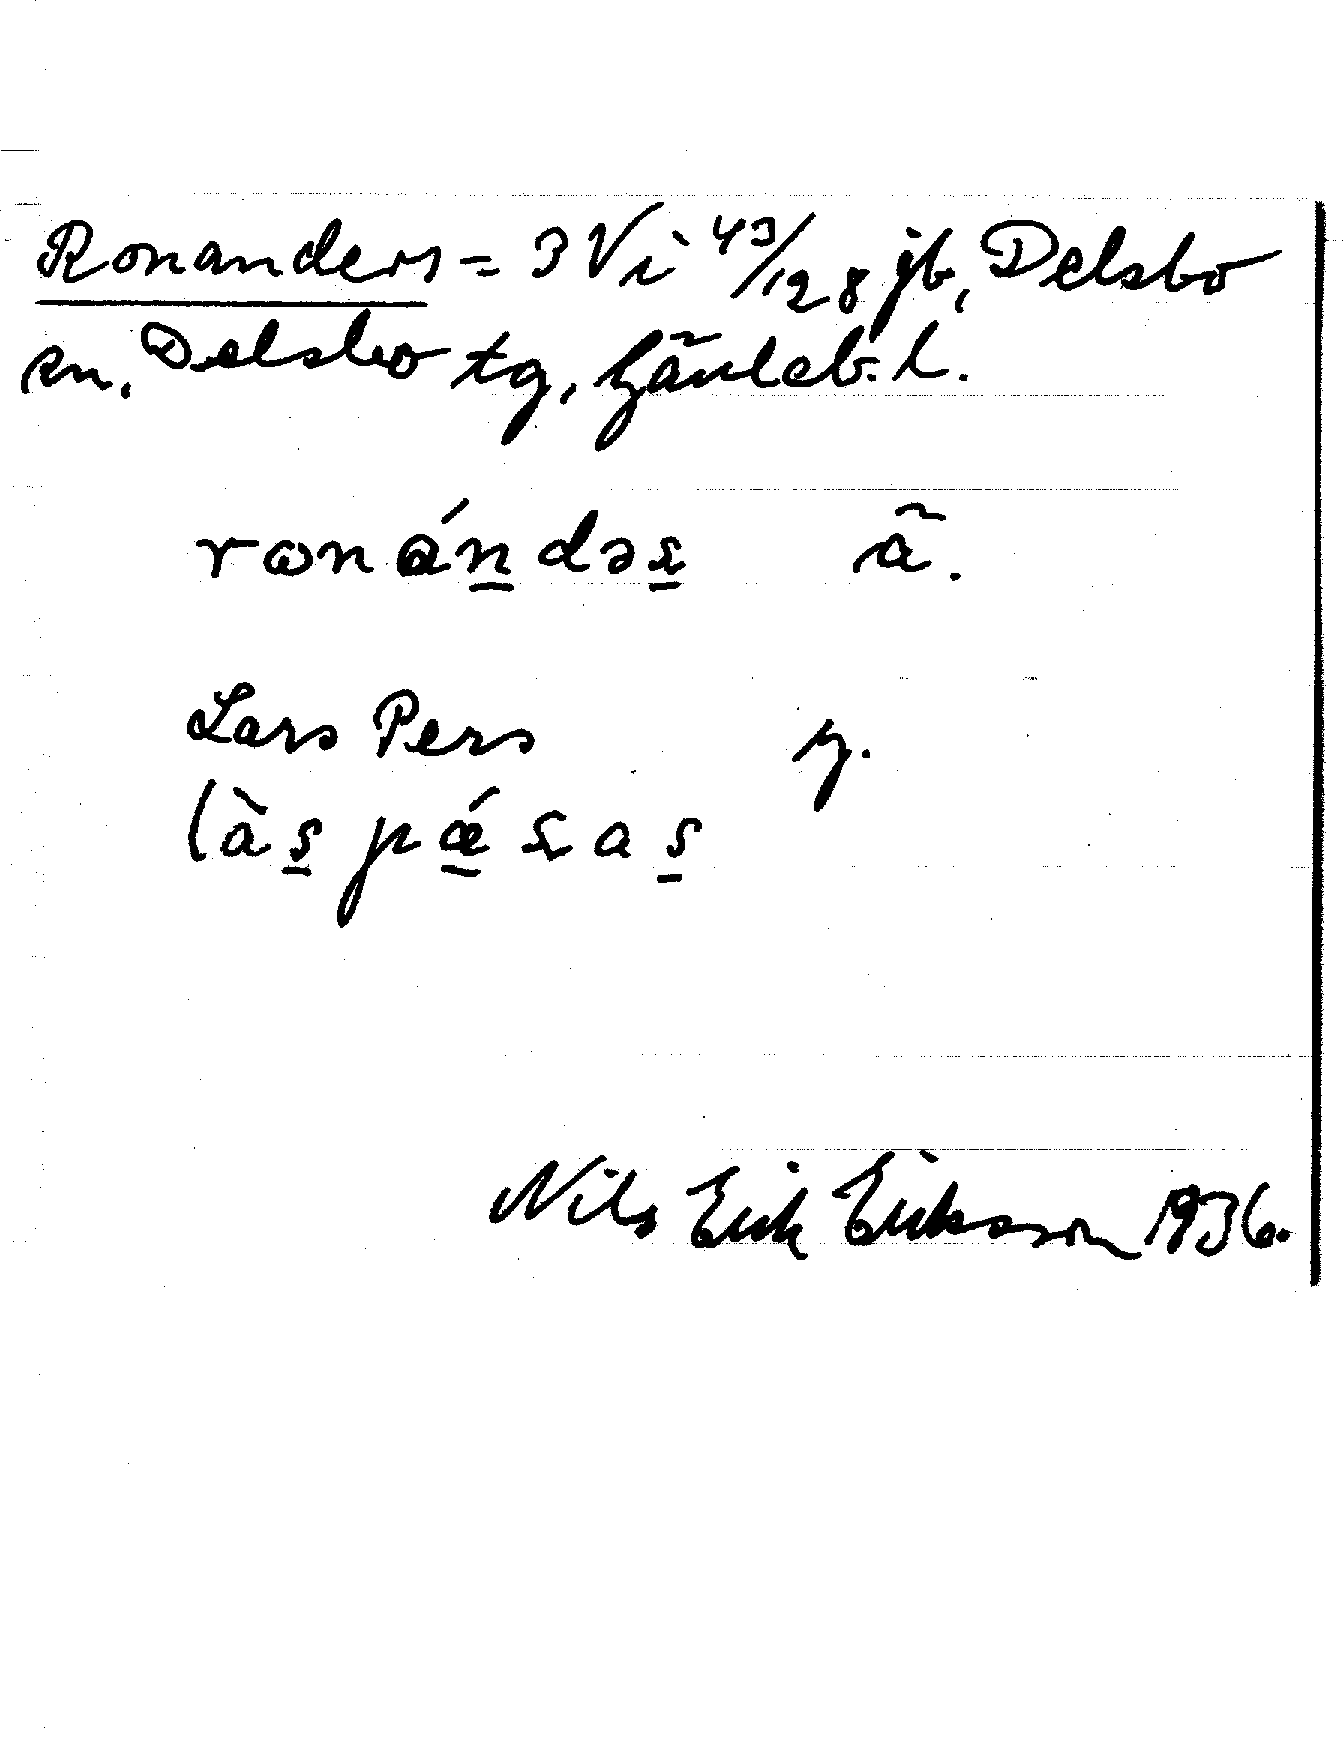 Ronanders = 3 Vi 43/128 jb, Delsbo
sn, Delsbo tg, Gävleb. l.
rωnán̲dəs̲ ä.
Lars Pers y.
làs̲ pǽ̲sas̲
Nils Erik Eriksson 1936.